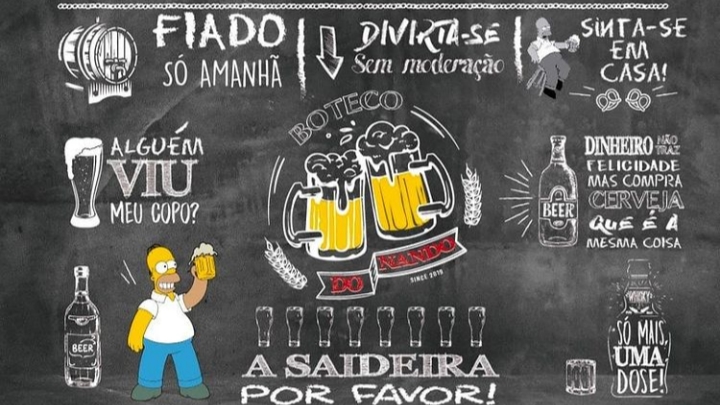 FIADO
SÓ AMANHÃ
DIVIRTA-SE
Sem moderação
SINTA-SE
EM
CASA!
ALGUÉM
VIU
MEU COPO?
BOTECO
DO NANDO
SINCE 2019
BEER
DINHEIRO NÃO
TRAZ
FELICIDADE
MAS COMPRA
CERVEJA
QUE É A
MESMA COISA
BEER
A SAIDEIRA
POR FAVOR!
WHISKY
SÓ MAIS
UMA
DOSE!